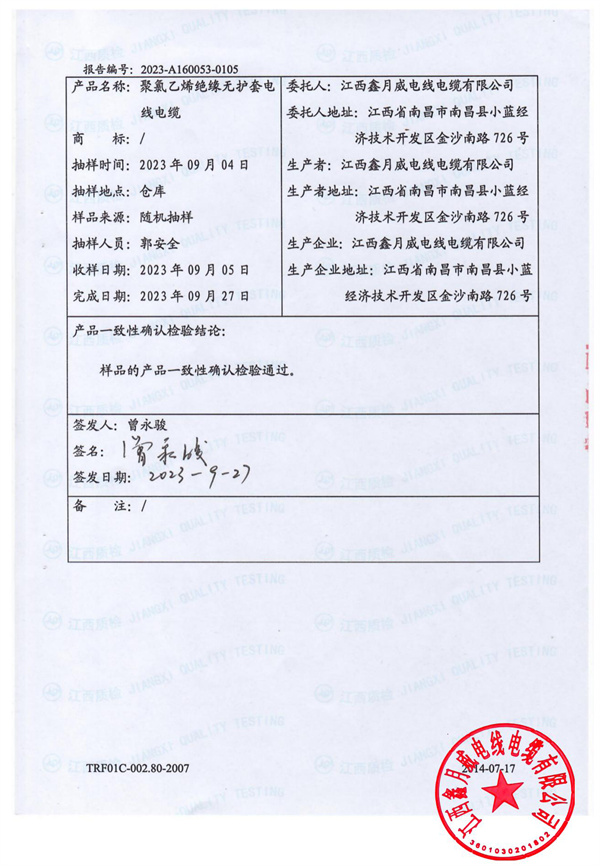 报告编号：2023-A160053-0105
产品名称：聚氯乙烯绝缘无护套电
线电缆
商 标：/
抽样时间：2023 年 09 月 04 日
抽样地点：仓库
样品来源：随机抽样
抽样人员：郭安全
收样日期：2023 年 09 月 05 日
完成日期：2023 年 09 月 27 日
委托人：江西鑫月威电线电缆有限公司
委托人地址：江西省南昌市南昌县小蓝经
济技术开发区金沙南路 726 号
生产者：江西鑫月威电线电缆有限公司
生产者地址：江西省南昌市南昌县小蓝经
济技术开发区金沙南路 726 号
生产企业：江西鑫月威电线电缆有限公司
生产企业地址：江西省南昌市南昌县小蓝
经济技术开发区金沙南路 726 号
产品一致性确认检验结论：
样品的产品一致性确认检验通过。
签发人：曾永骏
签名：曾永骏
签发日期：2023-9-27
备 注：/
TRF01C-002.80-2007
2014-07-17
江西鑫月威电线电缆有限公司
3601030201802
江西质检 JIANGXI QUALITY TESTING